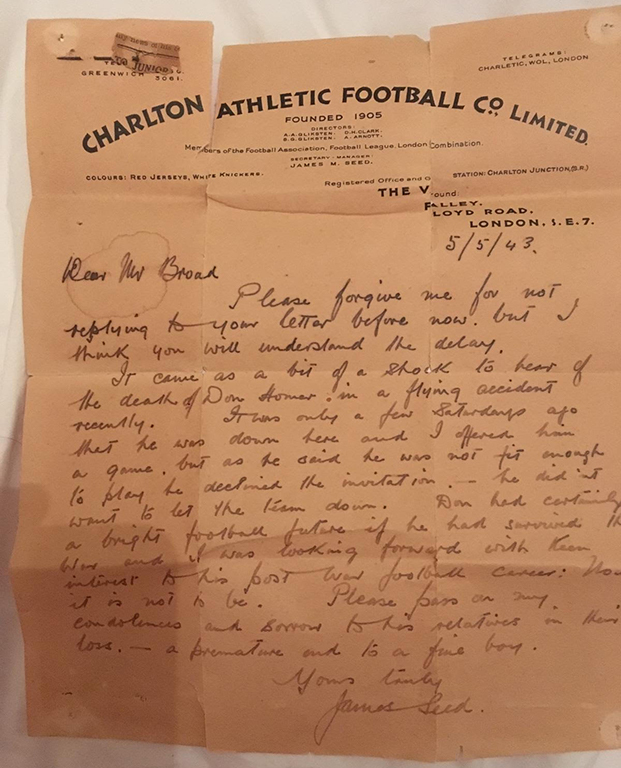 TELEGRAMS:
CHARLETIC, WOL, LONDON
JUNIOR
GREENWICH 3061.
CHARLTON ATHLETIC FOOTBALL Co. LIMITED.
FOUNDED 1905
DIRECTORS:
A.A. GLIKSTEN. D.H. CLARK.
S.G. GLIKSTEN. A. ARNOTT.
Members of the Football Association, Football League, London Combination.
SECRETARY - MANAGER:
JAMES M. SEED.
COLOURS: RED JERSEYS, WHITE KNICKERS.
STATION: CHARLTON JUNCTION, (S.R.)
Registered Office and G ound:
THE V ALLEY,
FLOYD ROAD,
LONDON, S.E.7.
5/5/43.
Dear Mr Broad
Please forgive me for not
replying to your letter before now. but I
think you will understand the delay.
It came as a bit of a shock to hear of
the death of Don Homer. in a flying accident
recently. It was only a few Saturdays ago
that he was down here and I offered him
a game. but as he said he was not fit enough
to play he declined the invitation. — he did'nt
want to let the team down. Don had certainly
a bright football future if he had survived th
War and I was looking forward with keen
interest to his post war football career: Now
it is not to be. Please pass on my
condolences and sorrow to his relatives in their
loss. — a premature end to a fine boy.
Yours truly
James Seed.